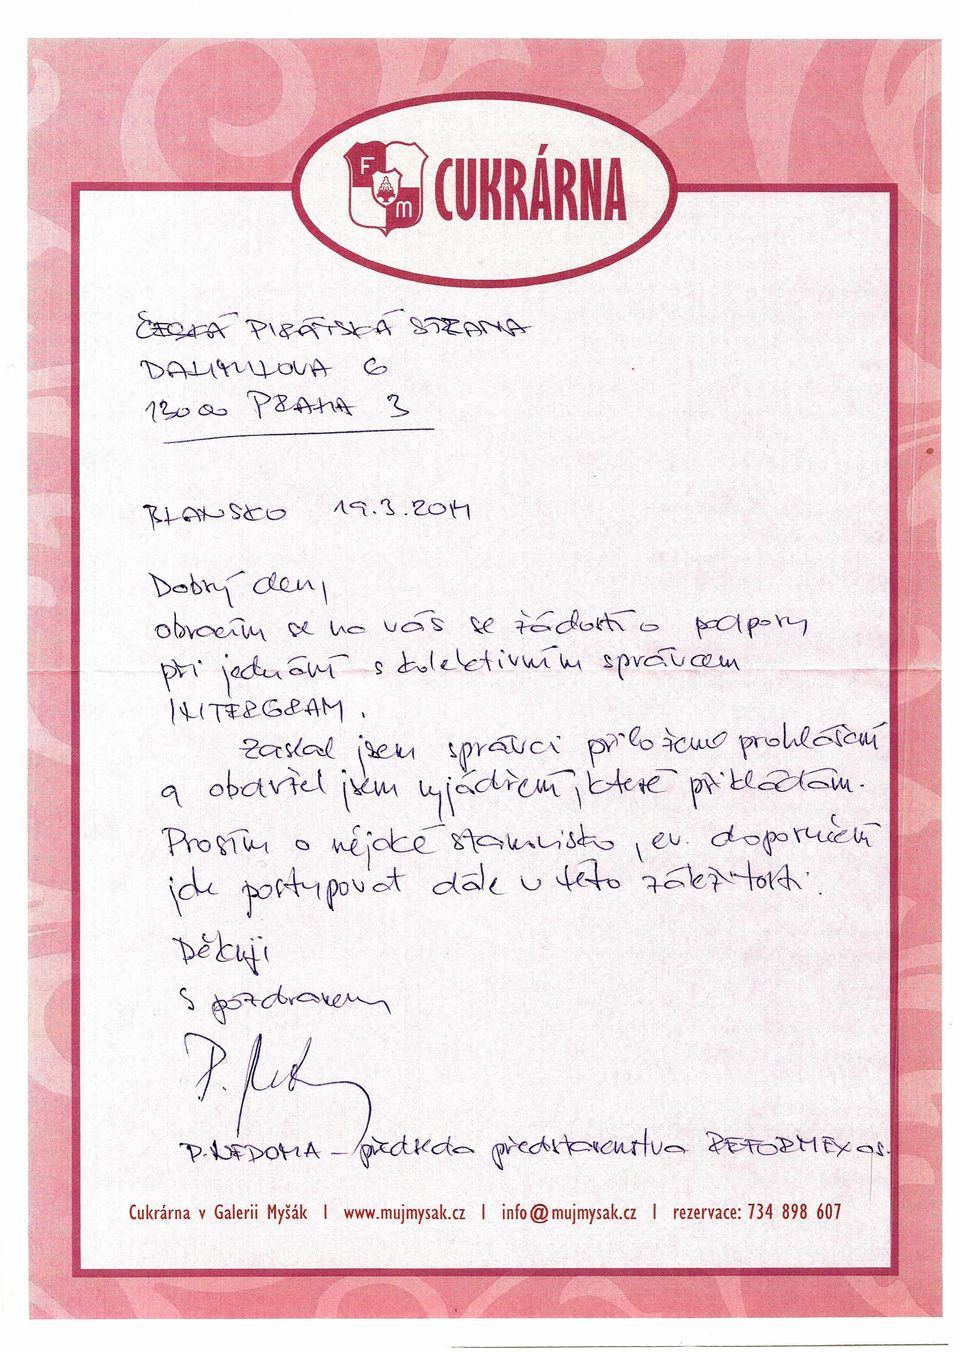 F
M
CUKRÁRNA
ČESKÁ PIRÁTSKÁ STRANA
DALIMILOVA 6
13000 PRAHA 3
BLANSKO 19.3.2014
Dobrý den,
obracím se na vás se žádostí o podporu
při jednání s kolektivním správcem
INTERGRAM.
Zaslal jsem správci přiložené prohlášení
a obdržel jsem vyjádření, které přikládám.
Prosím o nějaké stanovisko, ev. doporučení
jak postupovat dále v této záležitosti.
Děkuji
S pozdravem
P. NEDOMA – předseda představenstva REFORMEX as.
Cukrárna v Galerii Myšák | www.mujmysak.cz | info@mujmysak.cz | rezervace: 734 898 607